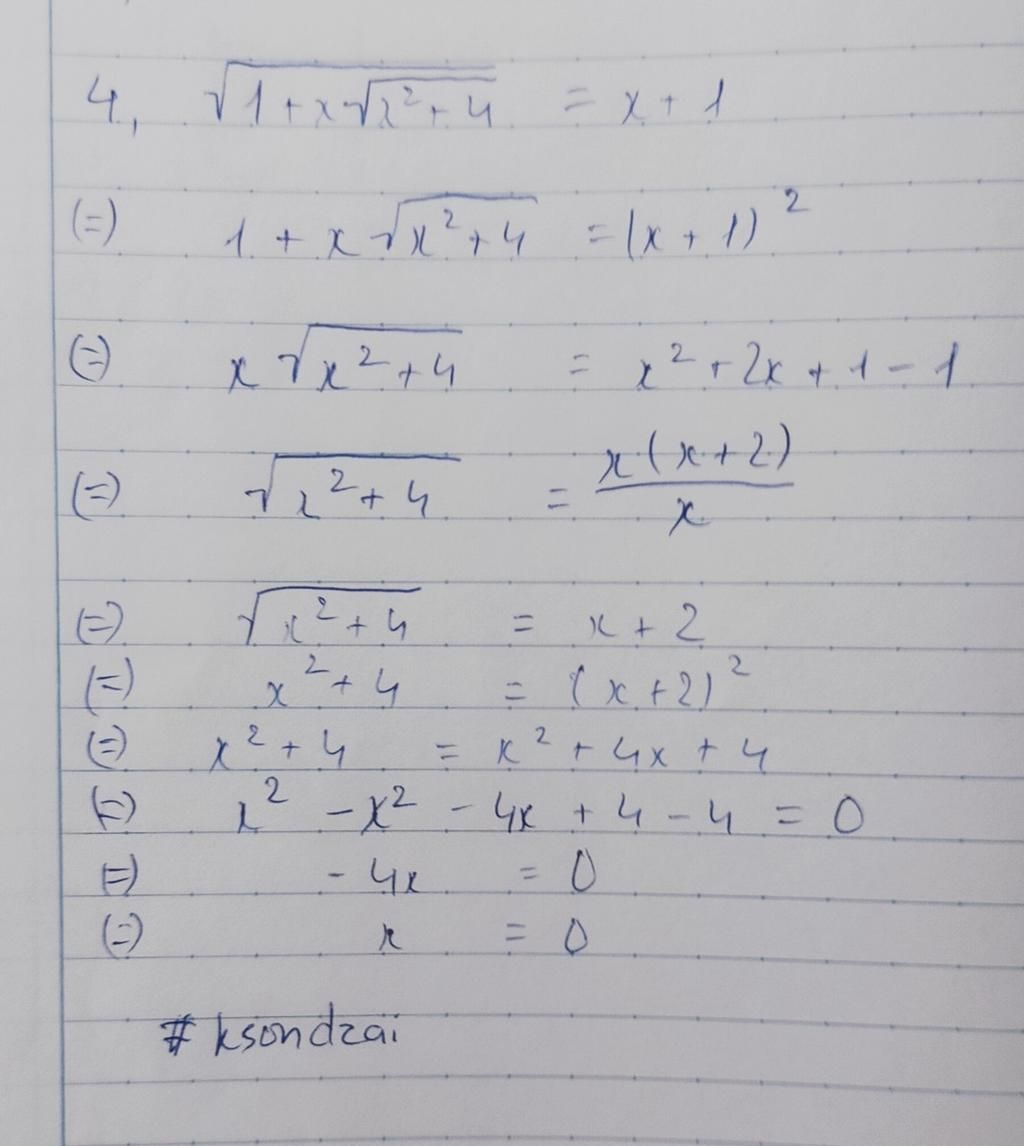 4, √(1 + x√(x² + 4)) = x + 1
(=) 1 + x√(x² + 4) = (x + 1)²
(=) x√(x² + 4) = x² + 2x + 1 - 1
(=) √(x² + 4) = x(x + 2)/x
(=) √(x² + 4) = x + 2
(=) x² + 4 = (x + 2)²
(=) x² + 4 = x² + 4x + 4
(=) x² - x² - 4x + 4 - 4 = 0
(=) - 4x = 0
(=) x = 0
# ksondzai